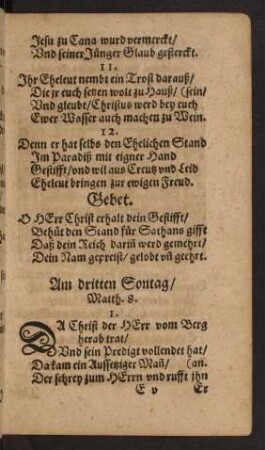 Jesu zu Cana wurd vermerckt/
Vnd seiner Jünger Glaub gesterckt.
11.
Ihr Eheleut nembt ein Trost darauß/
Die jr euch setzen wolt zu Hauß/ (sein/
Vnd gleubt/ Christus werd bey euch
Ewer Wasser auch machen zu Wein.
12.
Denn er hat selbs den Ehelichen Stand
Im Paradiß mit eigner Hand
Gestifft/ vnd wil aus Creutz vnd Leid
Eheleut bringen zur ewigen Freud.
Gebet.
O HErr Christ erhalt dein Gestifft/
Behüt den Stand für Sathans gifft
Daß dein Reich dariñ werd gemehrt/
Dein Nam gepreist/ gelobt vñ geehrt.
Am dritten Sontag/
Matth. 8.
1.
DA Christ der HErr vom Berg
herab trat/
Vnd sein Predigt vollendet hat/
Da kam ein Aussetziger Mañ/ (an.
Der schrey zum HErrn vnd rufft jhn
E v Er